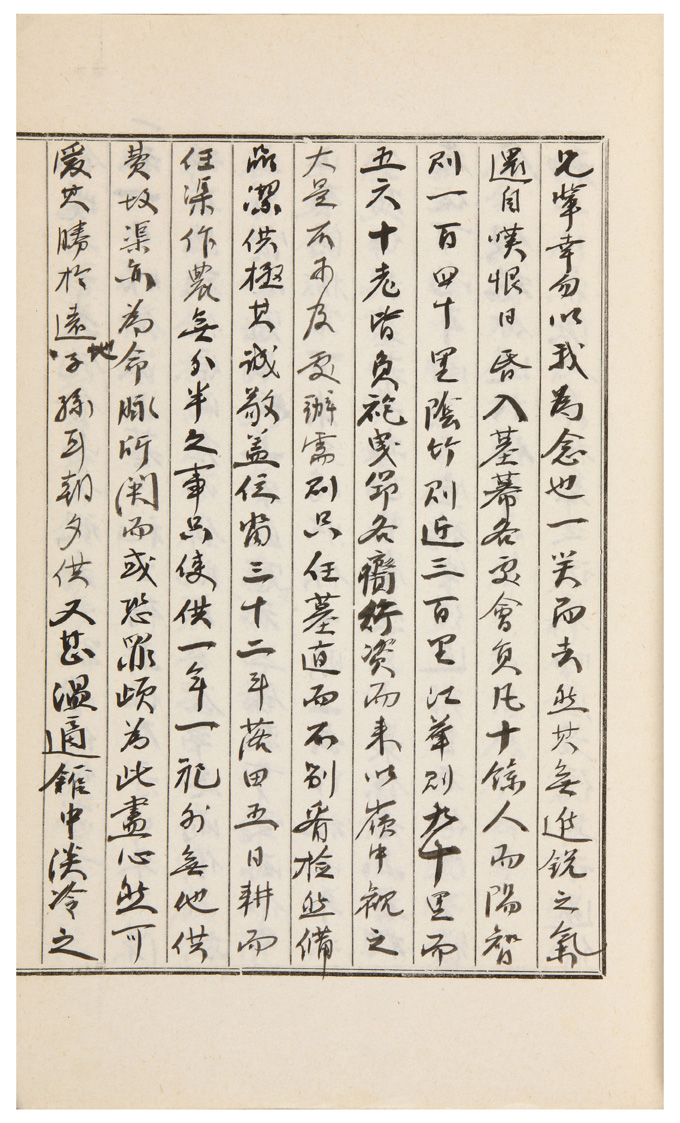 兄輩幸勿以我爲念也一笑而去然其無進銳之氣
還自嘆恨日昏入墓幕各處會員凡十餘人而陽智
則一百四十里陰竹則近三百里江華則九十里而
五六十老皆負袍曳筇各齎行資而来以嶺中觀之
大是不可及處辦需則只任墓直而不別看檢然備
品潔供極其誠敬盖位畓三十二斗落田五日耕而
任渠作農無分半之事只使供一年一祀外無他供
費故渠亦為命脉所関而或恐罪頉為此盡心然可
愛其勝於遠地子孫耳朝夕供又甚溫適 中淡冷之